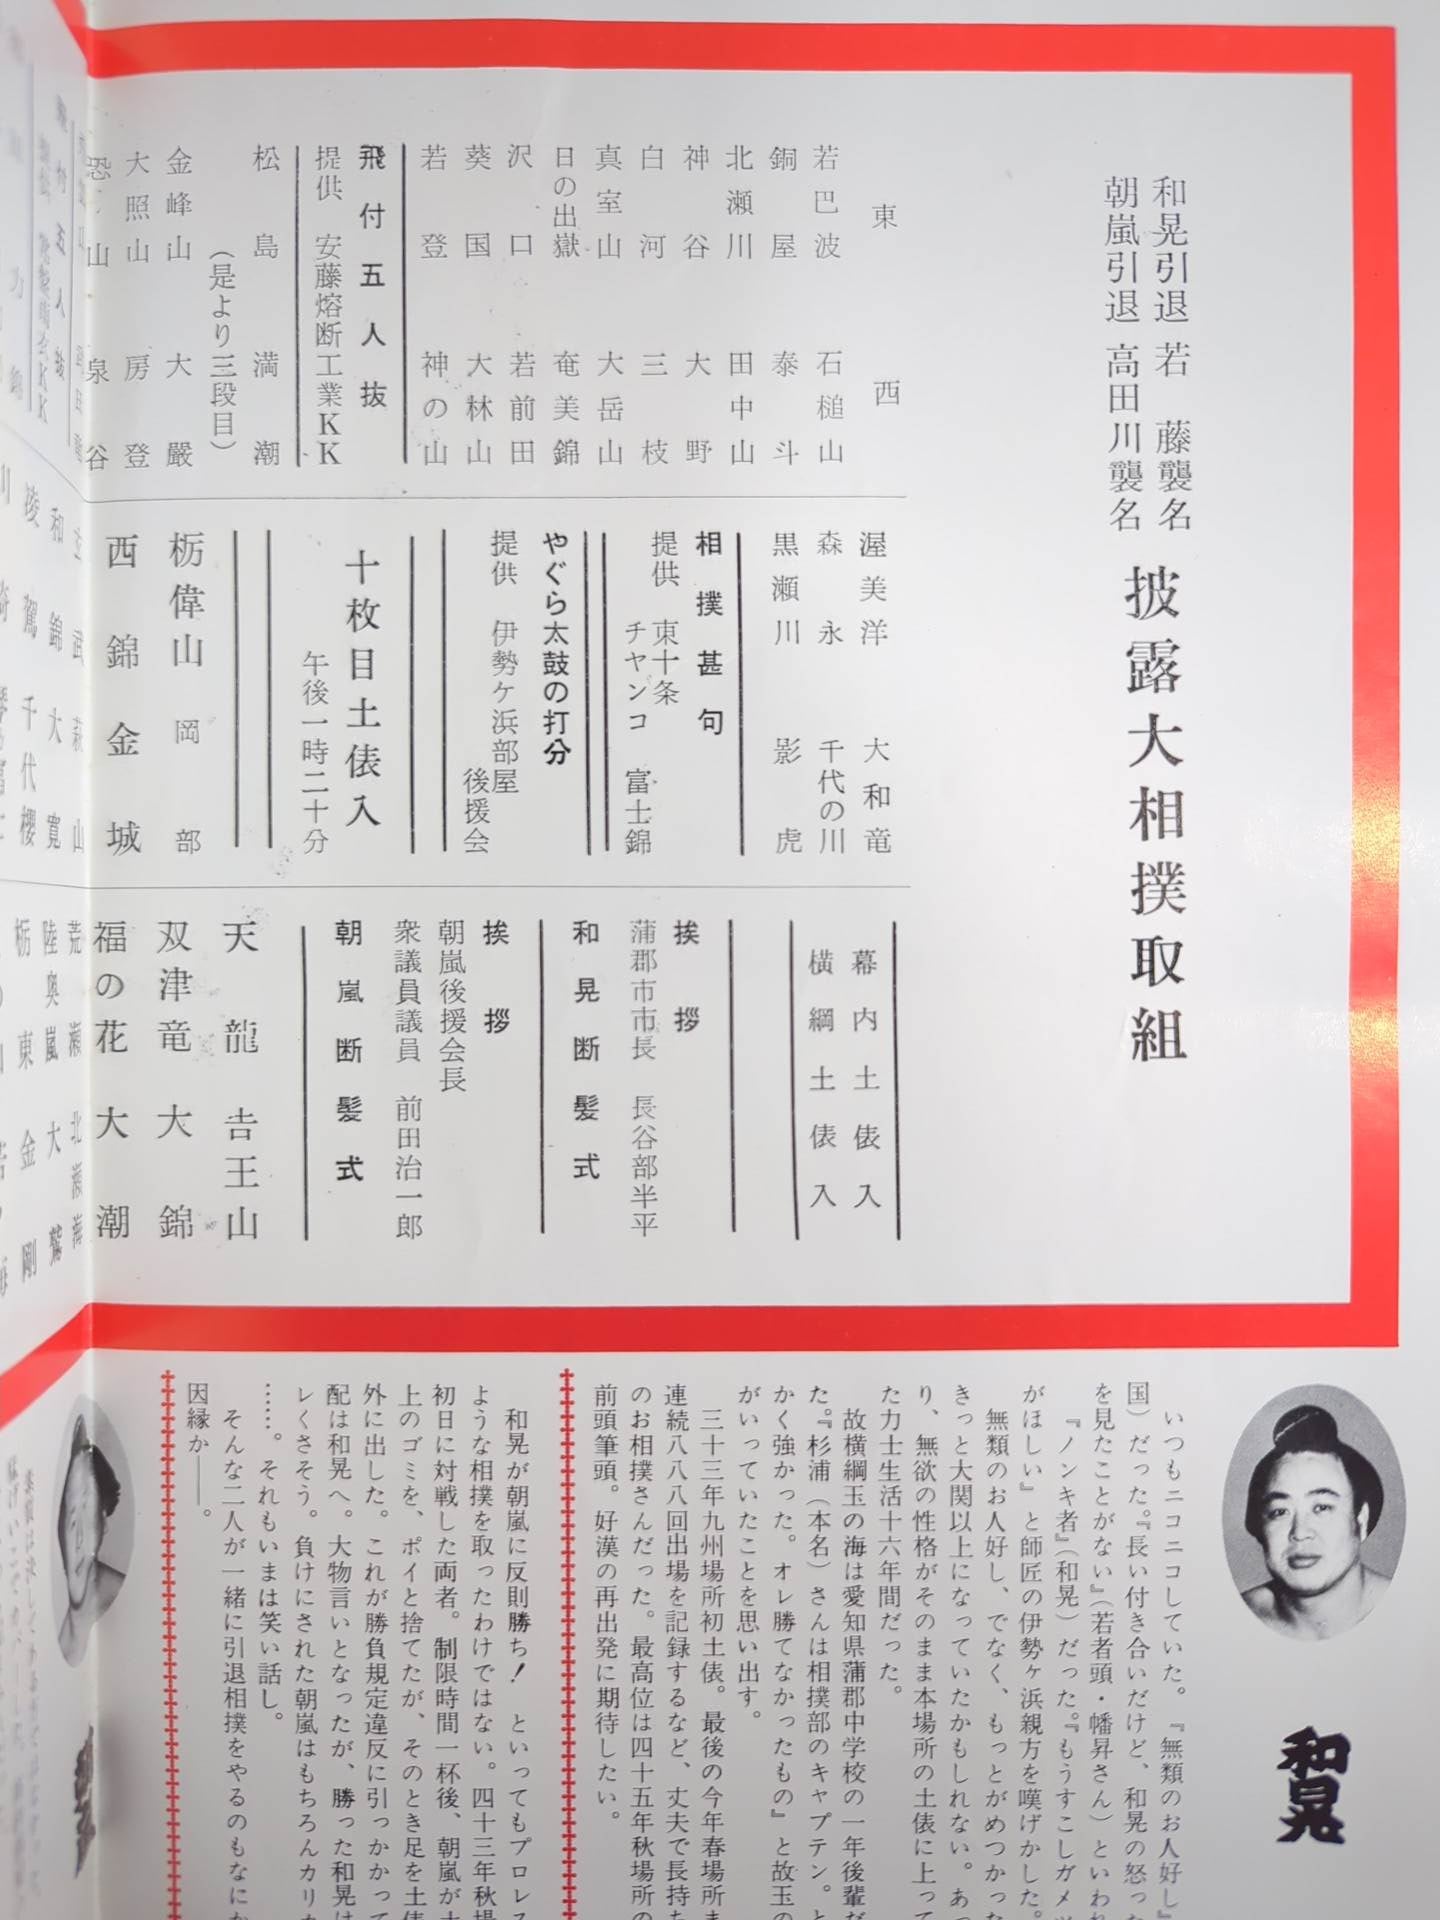 和晃引退 若藤襲名
朝嵐引退 高田川襲名
披露大相撲取組
東 西
若巴波 石槌山
銅屋 泰斗
北瀬川 田中山
神谷 大野
白河 三枝
真室山 大岳山
日の出嶽 奄美錦
沢口 若前田
葵国 大林山
若登 神の山
飛付五人抜
提供 安藤熔断工業KK
松島 満潮
(是より三段目)
金峰山 大巌
大照山 房登
山 泉谷
渥美洋 大和竜
森永 千代の川
黒瀬川 影虎
相撲甚句
提供 東十条
チヤンコ 富士錦
やぐら太鼓の打分
提供 伊勢ケ浜部屋
後援会
十枚目土俵入
午後一時二十分
栃偉山 岡部
西錦 金城
幕内土俵入
横綱土俵入
挨拶
蒲郡市市長 長谷部半平
和晃断髪式
挨拶
朝嵐後援会長
衆議員議員 前田治一郎
朝嵐断髪式
天龍 吉王山
双津竜 大錦
福の花 大潮
和晃
いつもニコニコしていた。『無類のお人好し』
国)だった。『長い付き合いだけど、和晃の怒った
を見たことがない』(若者頭・幡昇さん)といわれ
『ノンキ者』(和晃)だった。『もうすこしガメツ
がほしい』と師匠の伊勢ヶ浜親方を嘆げかした。
無類のお人好し、でなく、もっとがめつかった
きっと大関以上になっていたかもしれない。あっ
り、無欲の性格がそのまま本場所の土俵に上って
た力士生活十六年間だった。
故横綱玉の海は愛知県蒲郡中学校の一年後輩だ
た。『杉浦(本名)さんは相撲部のキャプテン。と
かく強かった。オレ勝てなかったもの』と故玉の
がいっていたことを思い出す。
三十三年九州場所初土俵。最後の今年春場所ま
連続八八八回出場を記録するなど、丈夫で長持ち
のお相撲さんだった。最高位は四十五年秋場所の
前頭筆頭。好漢の再出発に期待したい。
和晃が朝嵐に反則勝ち! といってもプロレス
ような相撲を取ったわけではない。四十三年秋場
初日に対戦した両者。制限時間一杯後、朝嵐が土
上のゴミを、ポイと捨てたが、そのとき足を土俵
外に出した。これが勝負規定違反に引っかかって
配は和晃へ。大物言いとなったが、勝った和晃は
レくさそう。負けにされた朝嵐はもちろんカリカ
……。それもいまは笑い話し。
そんな二人が一緒に引退相撲をやるのもなにか
因縁か――。